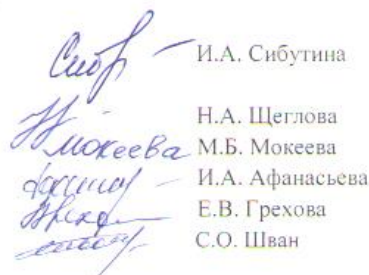 И.А. Сибутина
Н.А. Щеглова
Мокеева М.Б. Мокеева
И.А. Афанасьева
Е.В. Грехова
С.О. Шван